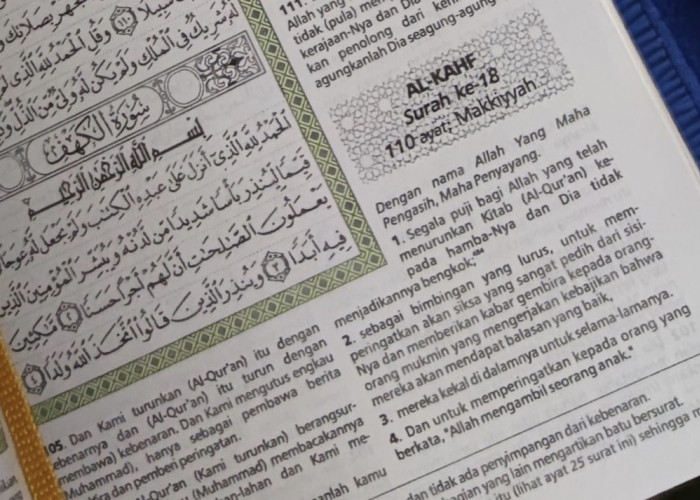 وَقُلِ الْحَمْدُ لِلَّهِ الَّذِي لَمْ
شَرِيكٌ فِي الْمُلْكِ وَلَمْ يَكُنْ لَهُ وَلِيٌّ مِنَ الذُّلِّ
سُورَةُ الْكَهْفِ
بِسْمِ اللَّهِ الرَّحْمَنِ الرَّحِيمِ
الْحَمْدُ لِلَّهِ الَّذِي أَنْزَلَ عَلَى عَبْدِهِ الْكِتَبَ وَلَمْ يَجْعَلْ لَهُ عِوَجًا
قَيِّمًا لِيُنْذِرَ بَأْسًا شَدِيدًا مِنْ لَدُنْهُ وَيُبَشِّرَ الْمُؤْمِنِينَ الَّذِينَ
يَعْمَلُونَ الصَّلِحَتِ أَنَّ لَهُمْ أَجْرًا حَسَنًا ٢ مَكِثِينَ
فِيهِ أَبَدًا ٣ وَيُنْذِرَ الَّذِينَ قَالُوا اتَّخَذَ اللَّهُ وَلَدًا ٤
105. Dan Kami turunkan (Al-Qur'an) itu dengan
ebenarnya dan (Al-Qur'an) itu turun dengan
(membawa) kebenaran. Dan Kami mengutus engkau
Muhammad), hanya sebagai pembawa berita
dan pemberi peringatan.
Qur'an (Kami turunkan) berangsur-
(Muhammad) membacakannya
-lahan dan Kami me-
kamu
111.
Allah yang
tidak (pula)
kerajaan-Nya dan Dia
kan penolong dari
agungkanlah Dia seagung-agung
AL-KAHF
Surah ke-18
110 ayat; Makkiyyah
Dengan nama Allah Yang Maha
Pengasih, Maha Penyayang.
1. Segala puji bagi Allah yang telah
menurunkan Kitab (Al-Qur'an) ke-
pada hamba-Nya dan Dia tidak
menjadikannya bengkok;
2. sebagai bimbingan yang lurus, untuk mem-
peringatkan akan siksa yang sangat pedih dari sisi-
Nya dan memberikan kabar gembira kepada orang-
orang mukmin yang mengerjakan kebajikan bahwa
mereka akan mendapat balasan yang baik,
3. mereka kekal di dalamnya untuk selama-lamanya.
4. Dan untuk memperingatkan kepada orang yang
berkata, "Allah mengambil seorang anak."
dan tidak ada penyimpangan dari kebenaran.
yang lain mengartikan batu bersurat.
itu (lihat ayat 25 surat ini) sehingga